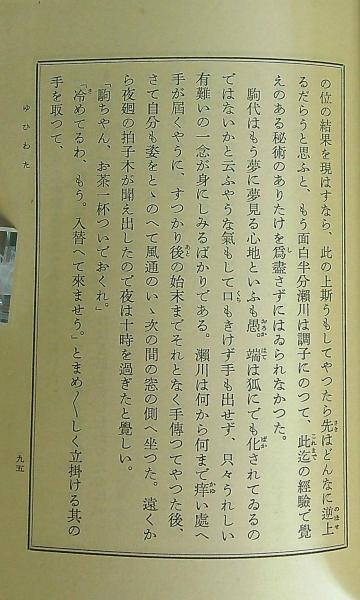 の位の結果を現はすなら、此の上斯うもしてやつたら先はどんなに逆上
るだらうと思ふと、もう面白半分瀬川は調子にのつて、此迄の經驗で覺
えのある秘術のありたけを爲盡さずにはゐられなかつた。
駒代はもう夢に夢見る心地といふも愚。端は狐にでも化されてゐるの
ではないかと云ふやうな氣もして口もきけず手も出せず、只々うれしい
有難いの一念が身にしみるばかりである。瀬川は何から何まで痒い處へ
手が屆くやうに、すつかり後の始末までそれとなく手傳つてやつた後、
さて自分も姿をとゝのへて風通のいゝ次の間の窓の側へ坐つた。遠くか
ら夜廻の拍子木が聞え出したので夜は十時を過ぎたと覺しい。
「駒ちやん、お茶一杯ついでおくれ。」
「冷めてるわ、もう。入替へて來ませう。」とまめ〳〵しく立掛ける其の
手を取つて、
ゆひわた
九五